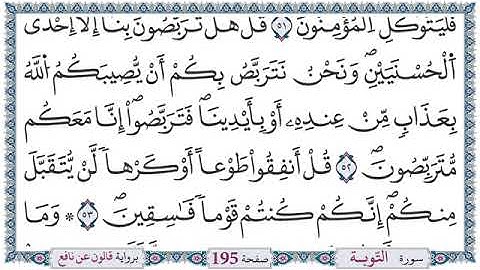 فَلْيَتَوَكَّلِ الْمُؤْمِنُونَ ٥١ قُلْ هَلْ تَرَبَّصُونَ بِنَا إِلَّا إِحْدَى
اَ۬لْحُسْنَيَيْنِۖ وَنَحْنُ نَتَرَبَّصُ بِكُمْ أَنْ يُّصِيبَكُمُ اُ۬للَّهُ
بِعَذَابٖ مِّنْ عِندِهِۦ أَوْ بِأَيْدِينَاۖ فَتَرَبَّصُوٓاْ إِنَّا مَعَكُم
مُّتَرَبِّصُونَۖ ٥٢ قُلْ أَنفِقُواْ طَوْعاً أَوْ كَرْهاً لَّنْ يُّتَقَبَّلَ
مِنكُمْۖ إِنَّكُمْ كُنتُمْ قَوْماً فَٰسِقِينَۖ ٥٣ ۞ وَمَا
سورة التوبة صفحة 195 برواية قالون عن نافع